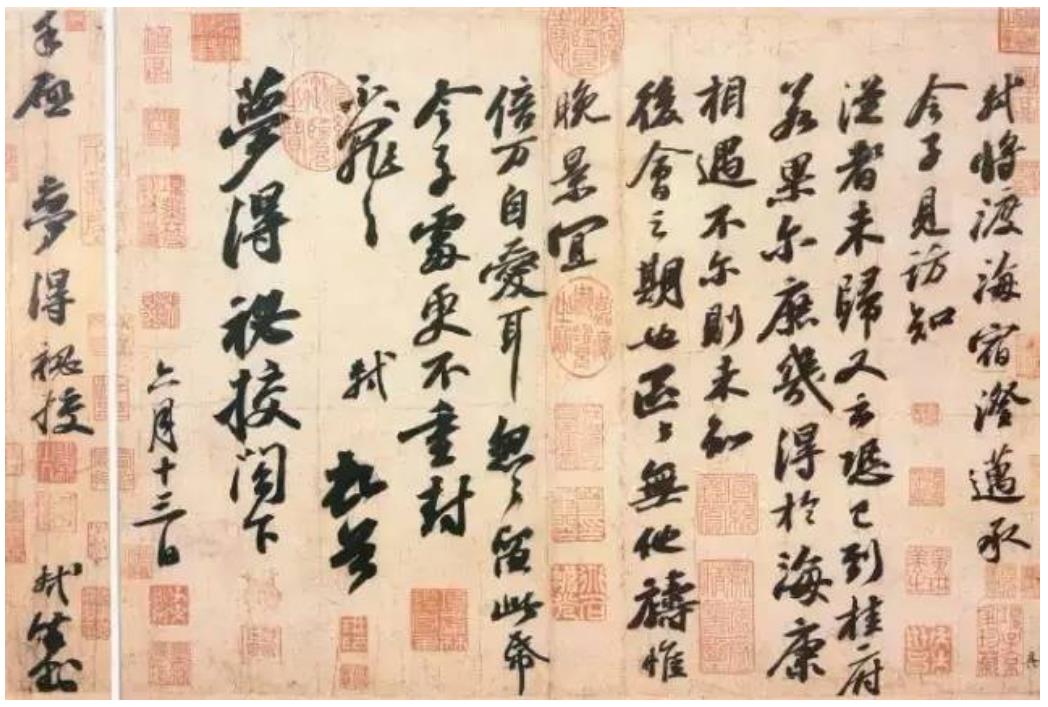 軾將渡海宿澄邁承
令子見訪知
從者未歸又云恐已到桂府
若果尔庶幾得於海康
相遇不尔則未知
後會之期也區〻無他禱惟
晚景宜
倍万自愛耳怱〻留此帋
令子處更不重封
不罪〻 軾 頓首
夢得祕校閣下
六月十三日
手啟 夢得祕校 軾謹封